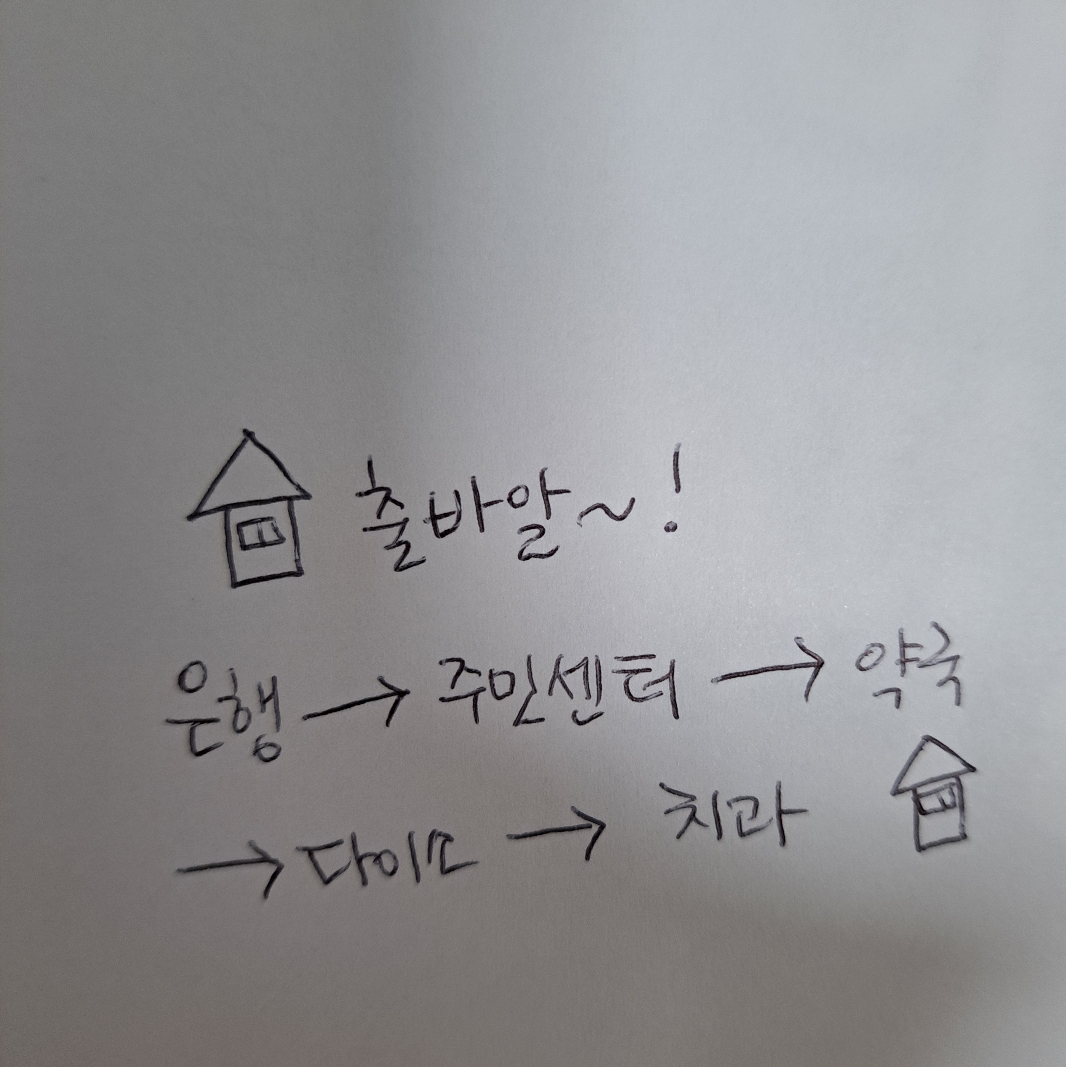 출바알~!
은행 → 주민센터 → 약국
→ 다이소 → 치과